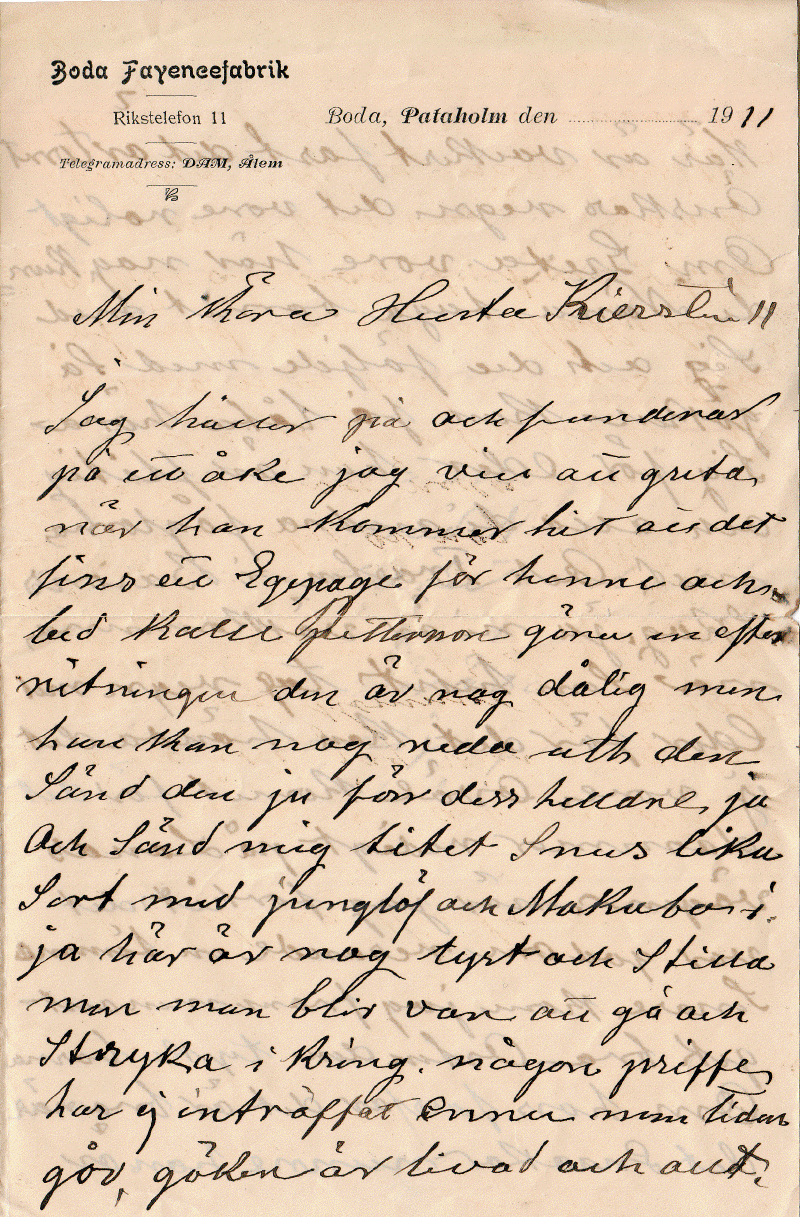 Boda Fayencefabrik
Rikstelefon 11
Boda, Pataholm den 1911
Telegramadress: DAM, Ålem
Min Kära Hustru Kierstin 11
Jag håller på och funderar
på ett åke jag vill att greta
när han kommer hit att det
fins ett Egepage för henne och
bed Kalle petterson göra en efter
ritningen den är nog dålig men
han kan nog reda uth den
Sänd den ju förr dess helldre ja
Och Sänd mig litet Snus lika
Sort med junglöf och Makuba i
ja här är nog tyst och Stilla
men man blir van att gå och
Stryka i Kring. någon priffe
har ej inträffat ennu men tiden
går, göken är livad och allt.